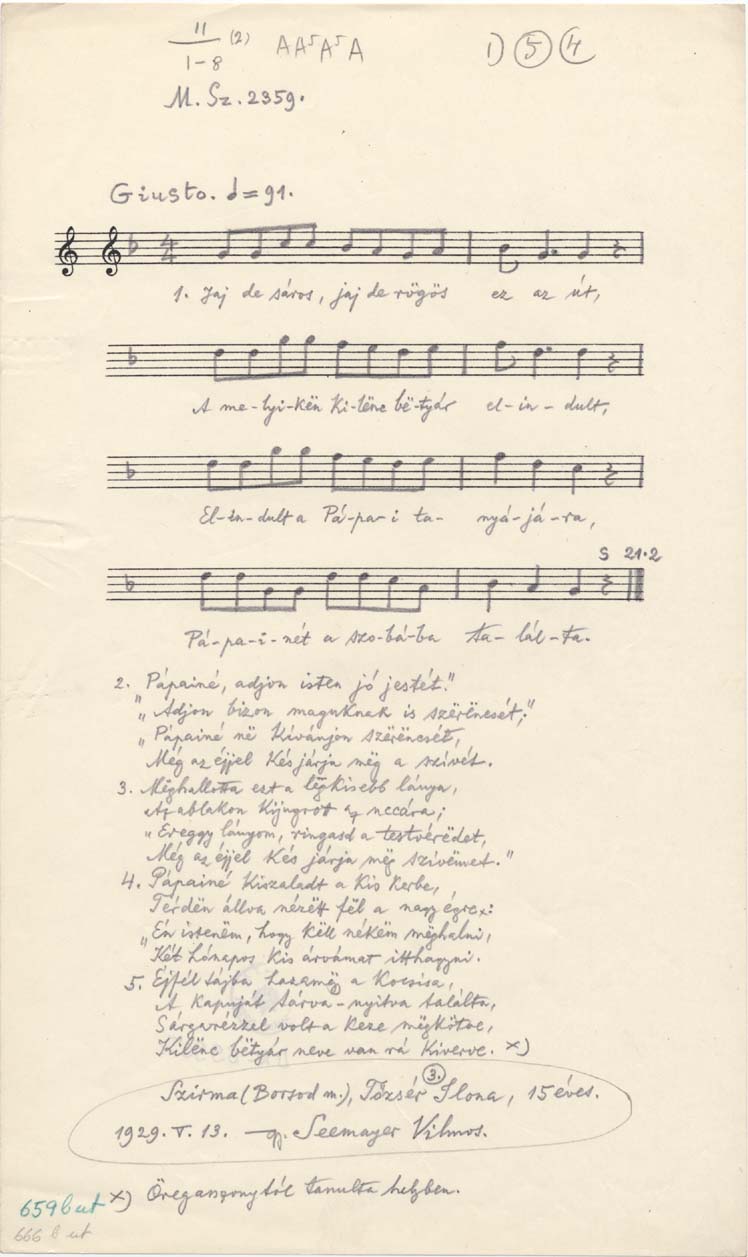 11
1-8
(2) AA⁵A⁵A 1) 5 4
M. Sz. 2359.
Giusto. ♩=91.
1. Jaj de sáros, jaj de rögös ez az út,
A me-lyi-kën ki-lenc bë-tyár el-in-dult,
El-in-dult a Pá-pa-i ta-nyá-já-ra,
S 21.2
Pá-pa-i-nét a szo-bá-ba ta-lál-ta.
2. Pápainé, adjon isten jó jestét."
"Adjon bizon maguknak is szërëncsét;"
"Pápainé në kívánjon szërëncsét,
Még az éjjel kés járja még a szívét.
3. Mëghallotta ezt a lëgkisebb lánya,
Az ablakon kijugrot az uccára;
"Ereggy lányom, ringasd a testvérëdet,
Még az éjjel kés járja mëg szívëmet."
4. Pápainé kiszaladt a kis kerbe,
Térdën állva nézëtt fël a nagy égre:
"Én istenëm, hogy këll nékëm mëghalni,
Két hónapos kis árvámat itthagyni.
5. Éjfél tájba hazamëj a kocsisa,
A kapuját tárva-nyitva találta,
Sárgarézzel volt a keze mëgkötve,
Kilënc bëtyár neve van rá kiverve. x)
Szirma (Borsod m.), Tőzsér Ilona, 15 éves.
3.
1929. V. 13. — gy. Seemayer Vilmos.
x) Öregasszonytól tanulta helyben.
659 b ut
666 b ut